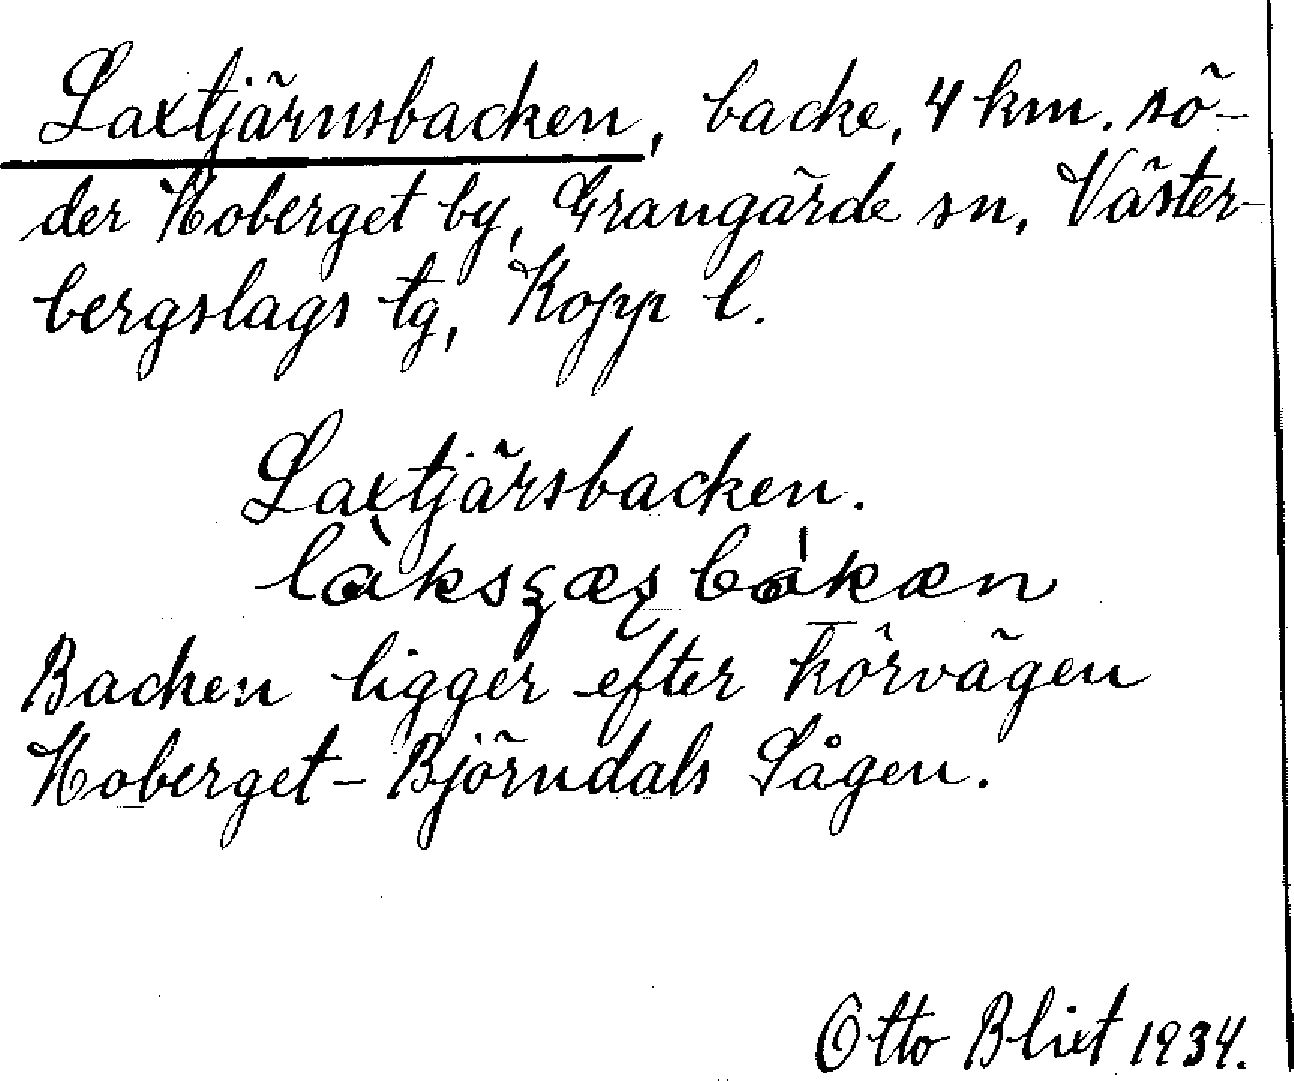 Laxtjärnsbacken, backe, 4 km. sö-
der Hoberget by, Grangärde sn, Väster-
bergslags tg, Kopp l.
Laxtjärsbacken.
Backen ligger efter körvägen
Hoberget - Björndals Sågen.
Otto Blixt 1934.